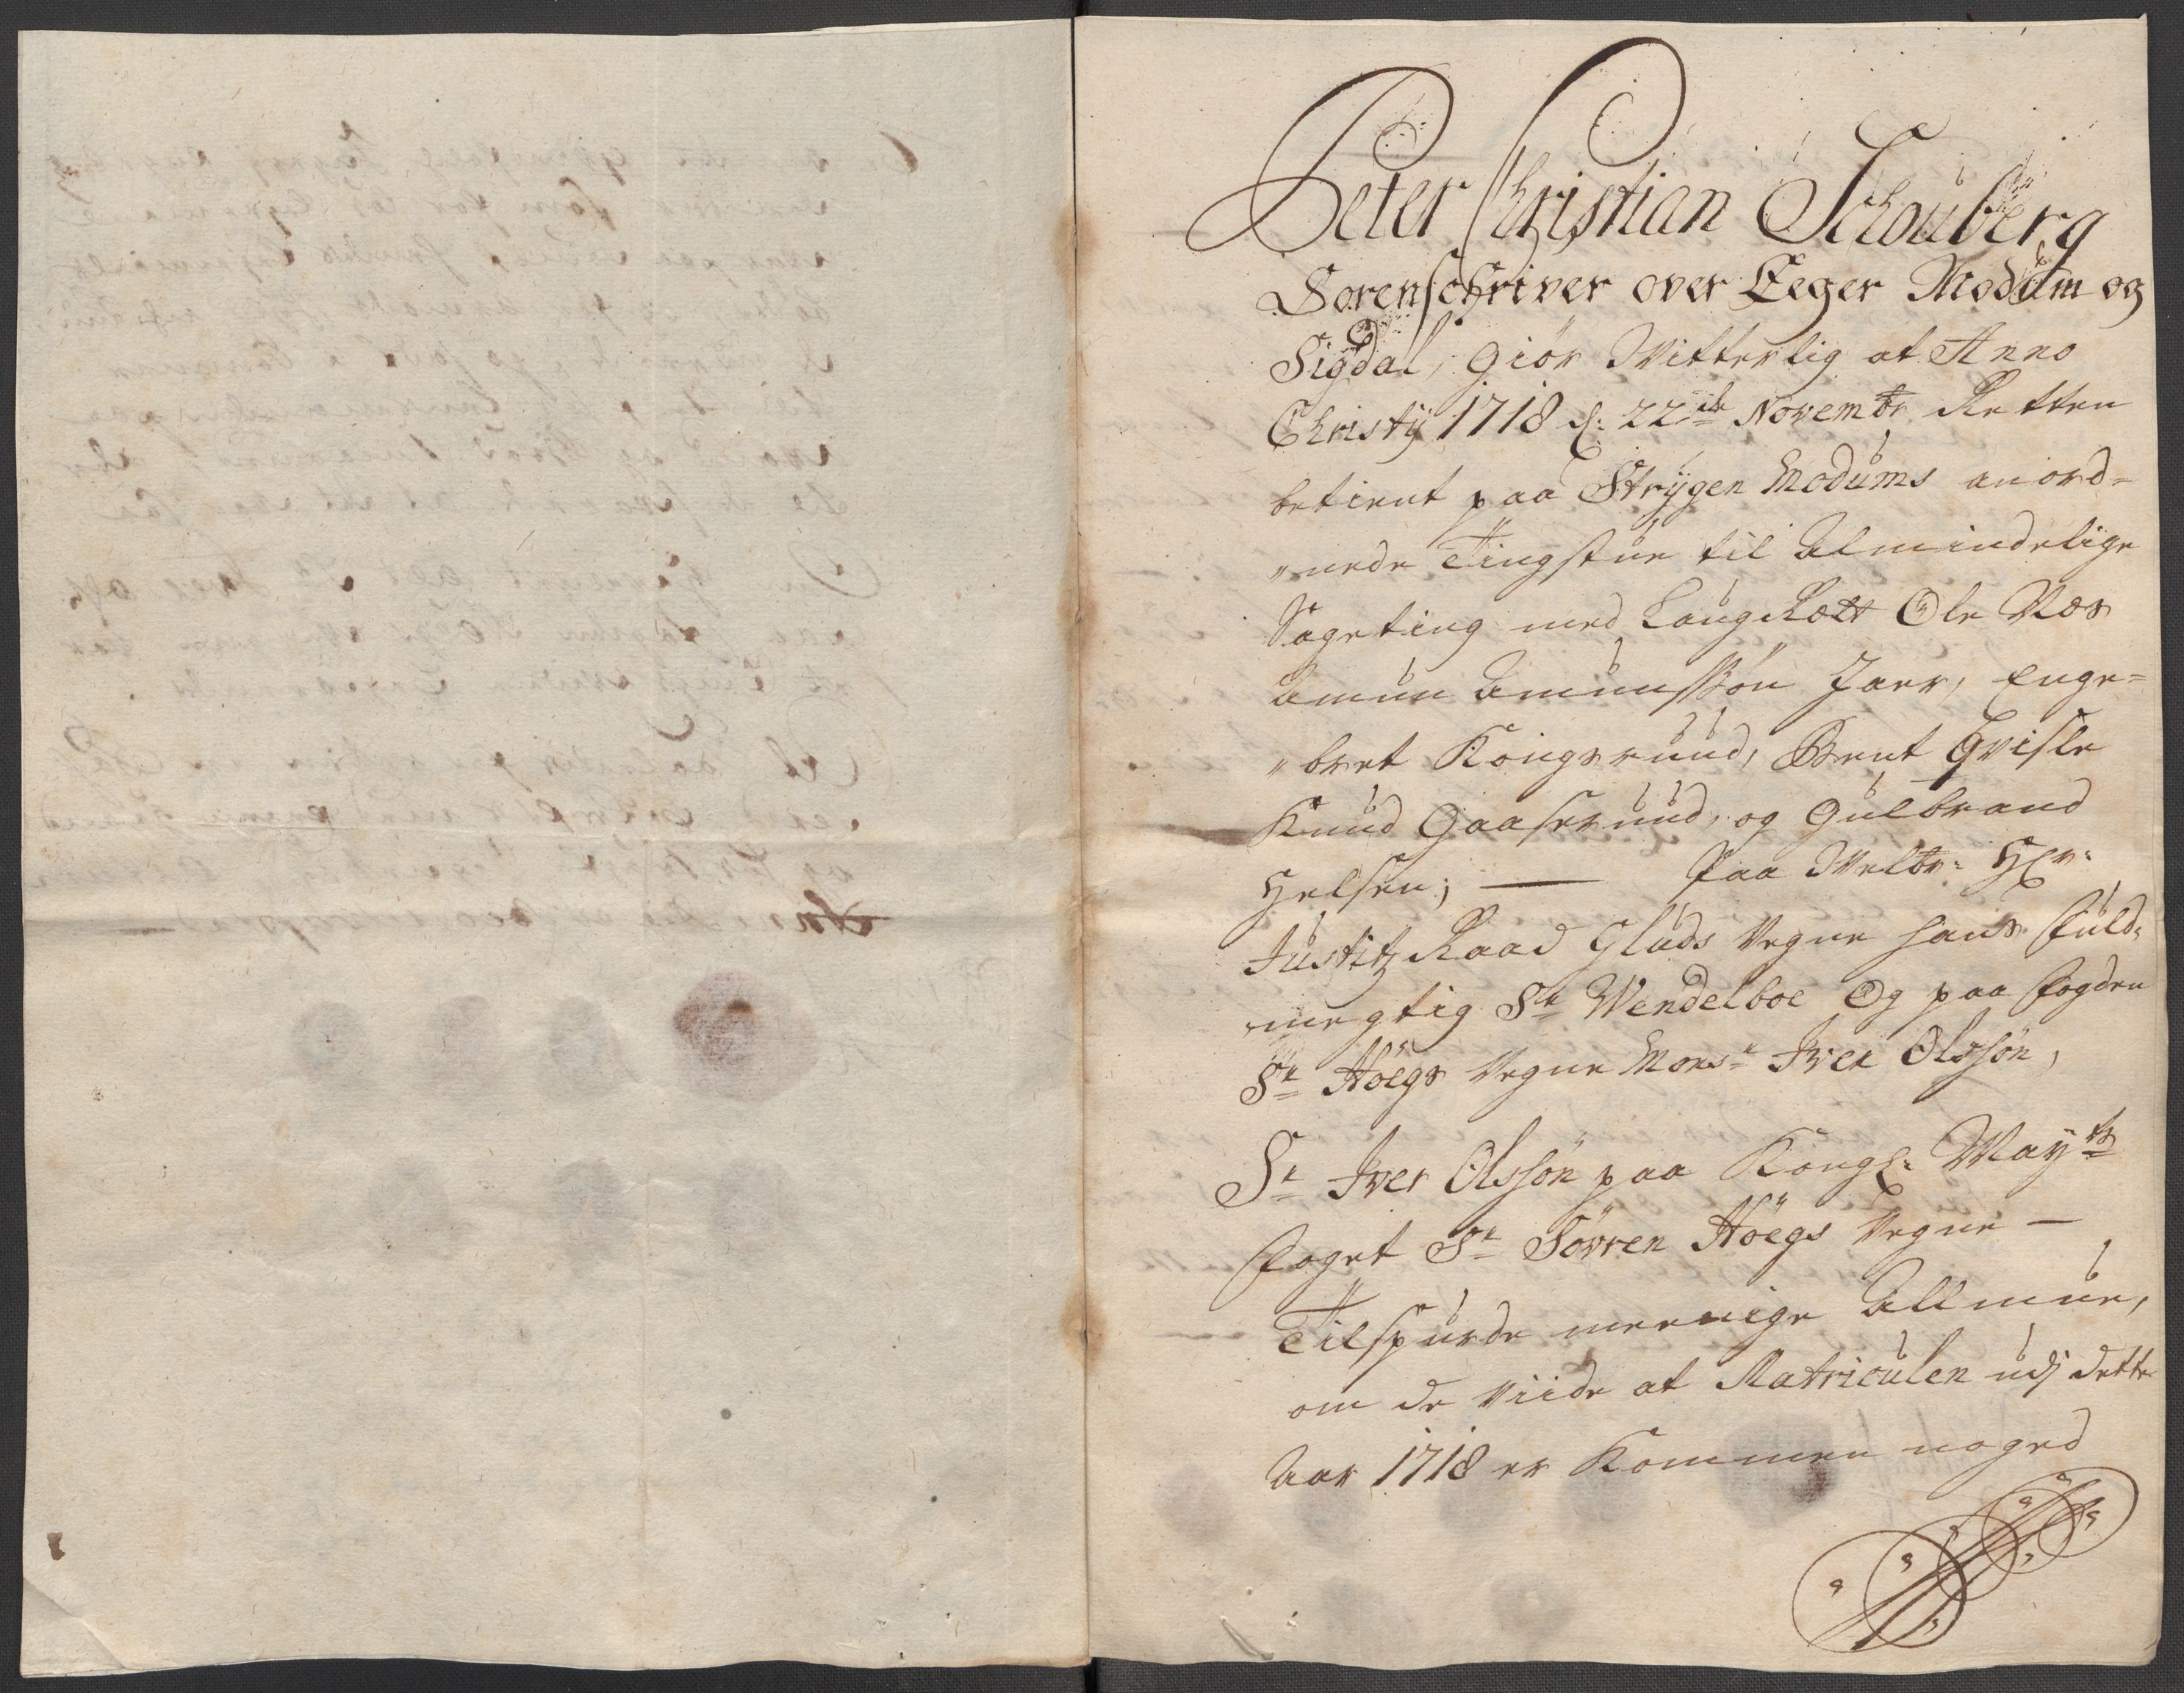 Peter Christian Schouberg
Sorenschriver over Eeger Modum og
Sigdal, Giör Witterlig at Anno
Christÿ 1718 d: 22de Novembr Retten
betient paa Strÿgen Modums anord-
"nede Tingstue til Almindelige
Sageting med Laug Rætt Ole Næs
Amun Amunssøn Jarr, Enge-
"bret Kongsruud, Bent Qvisle
Knud Gaaseruud, og Gulbrand
Helsen; — Paa Welbr: Her:
Justitz Raad Gluds Vegne hans Fuld-
megtig Sr Wendelboe Og paa Fogden
Sr Höegs Vegne Monsr Iver Olssön,
Sr Iver Olssön paa Kongl: Mayts
Foget Sr Sövren Höegs Vegne —
Tilspurde meenige Allmue,
om de viide at Matriculen udj dette
Aar 1718 er Kommen noged